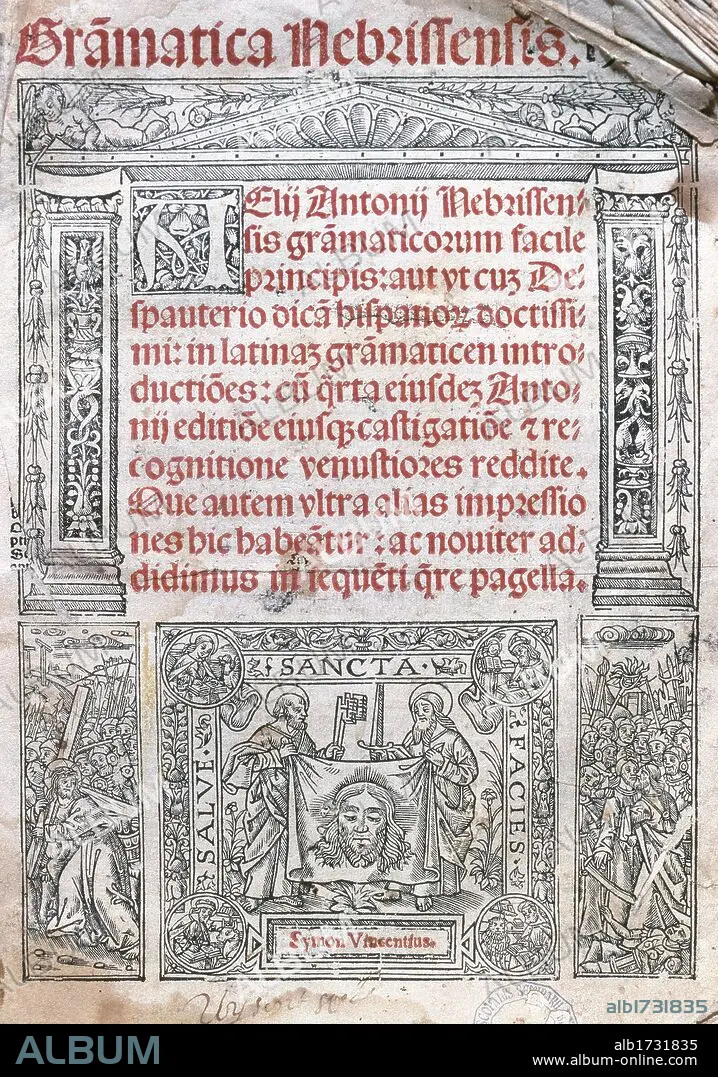 Grãmatica Nebrissensis.
NElij Antonij Nebrissen⸗
sis grãmaticorum facile
principis: aut vt cuʒ De⸗
spauterio dicã hispanoꝝ doctissi⸗
mi: in latinaʒ grãmaticen intro⸗
ductiões: cũ q̃rta eiusdeʒ Anto⸗
nij editiõe eiusqꝫ castigatiõe ⁊ re⸗
cognitione venustiores reddite.
Que autem vltra alias impressio
nes hic habeãtur: ac nouiter ad⸗
didimus in sequẽti q̃re pagella.
SANCTA.
SALVE.
FACIES.
Symon Vincentius.
alb1731835
ALBUM
alb1731835
www.album-online.com